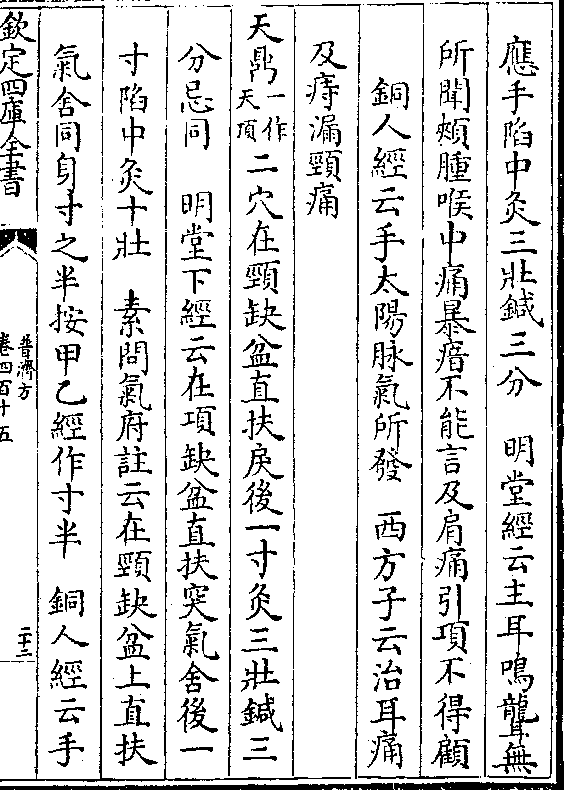 應手陷中灸三壯鍼三分　明堂經云主耳鳴聾無
所聞頰腫喉中痛暴瘖不能言及肩痛引項不得顧
銅人經云手太陽脉氣所發　西方子云治耳痛
及痔漏頸痛
天鼎一作天項二穴在頸缺盆直扶戾後一寸灸三壯鍼三
分忌同　明堂下經云在項缺盆直扶突氣舍後一
寸陷中灸十壯　素問氣府註云在頸缺盆上直扶
氣舍同身寸之半按甲乙經作寸半　銅人經云手
欽定四庫全書
普濟方
卷四百十五
二十二